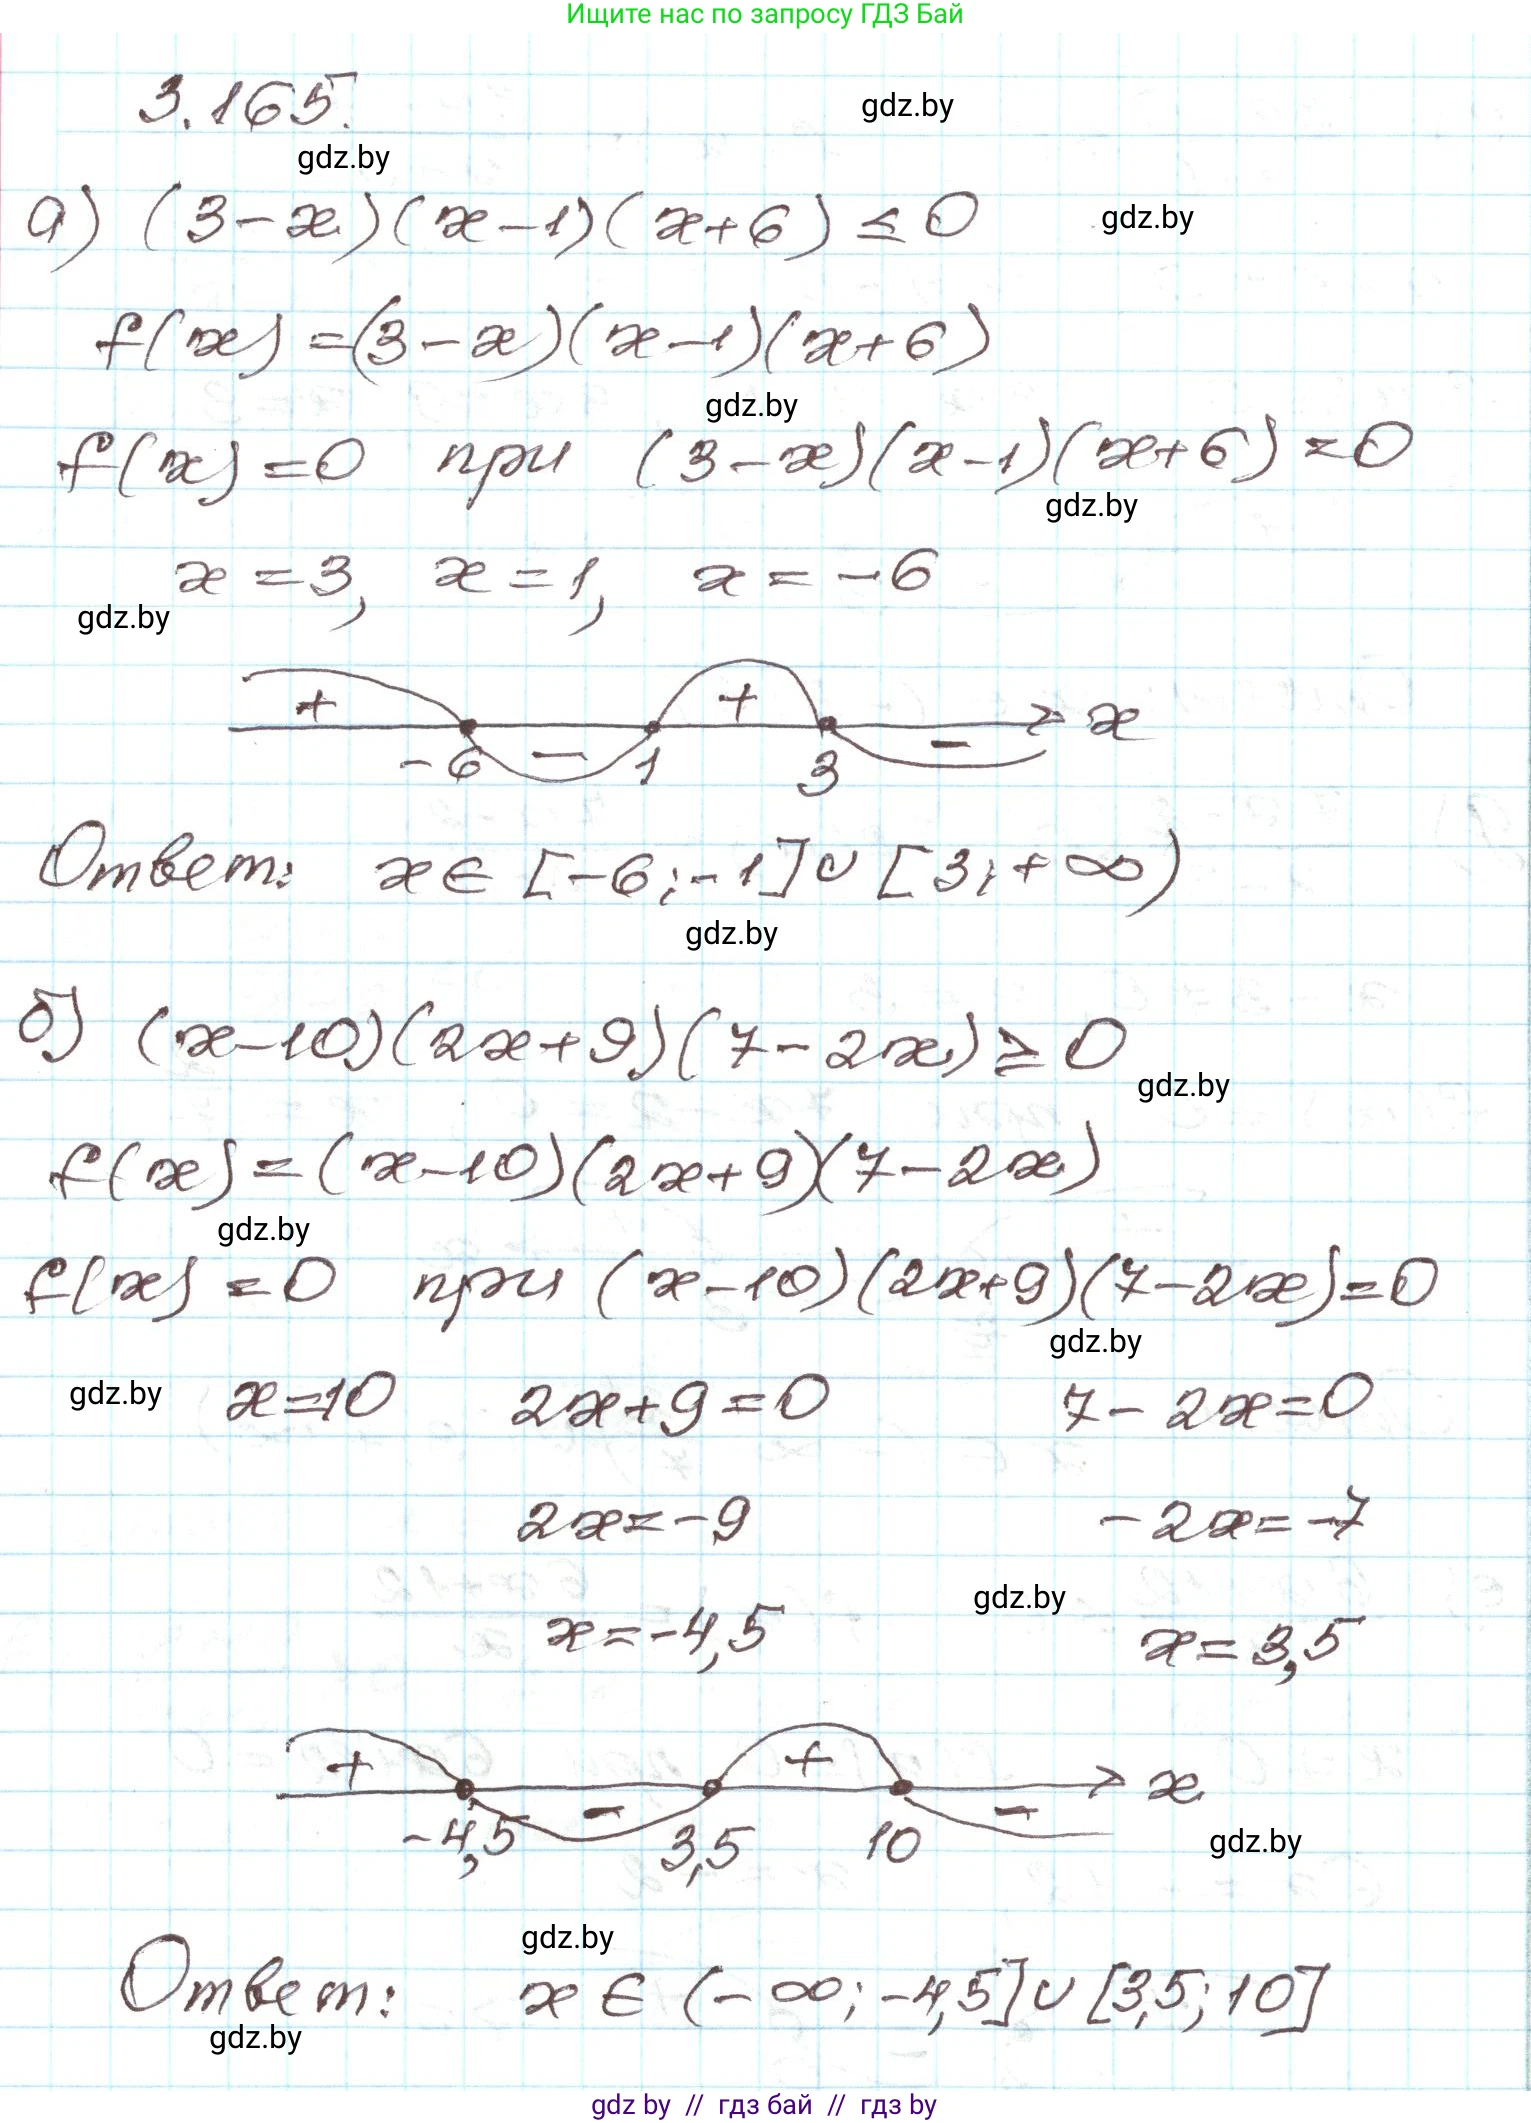 Ищите нас по запросу ГДЗ Бай
3.165.
gdz.by
gdz.by
а) (3-x)(x-1)(x+6) ≤ 0
gdz.by
f(x) = (3-x)(x-1)(x+6)
gdz.by
f(x) = 0 при (3-x)(x-1)(x+6) = 0
gdz.by
x = 3, x = 1, x = -6
gdz.by
+ + x
-6 - 1 3 -
Ответ: x ∈ [-6; -1] ∪ [3; +∞)
gdz.by
б) (x-10)(2x+9)(7-2x) ≥ 0
gdz.by
f(x) = (x-10)(2x+9)(7-2x)
gdz.by
f(x) = 0 при (x-10)(2x+9)(7-2x) = 0
gdz.by
gdz.by x=10 2x+9=0 7-2x=0
2x=-9 -2x=-7
gdz.by
x=-4,5 x=3,5
+ + x
-4,5 - 3,5 10 -
gdz.by
gdz.by
Ответ: x ∈ (-∞; -4,5] ∪ [3,5; 10]
gdz.by
gdz by // гдз бай // гдз by